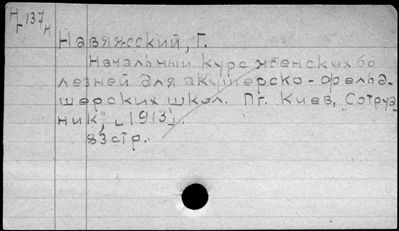 Н-137н
Навяжсский, Г.
Начальный курс женских бо
лезней для акушерско-фельд-
шерских школ. Пг. Киев, "Сотруд
ник", [1913].
83 стр.